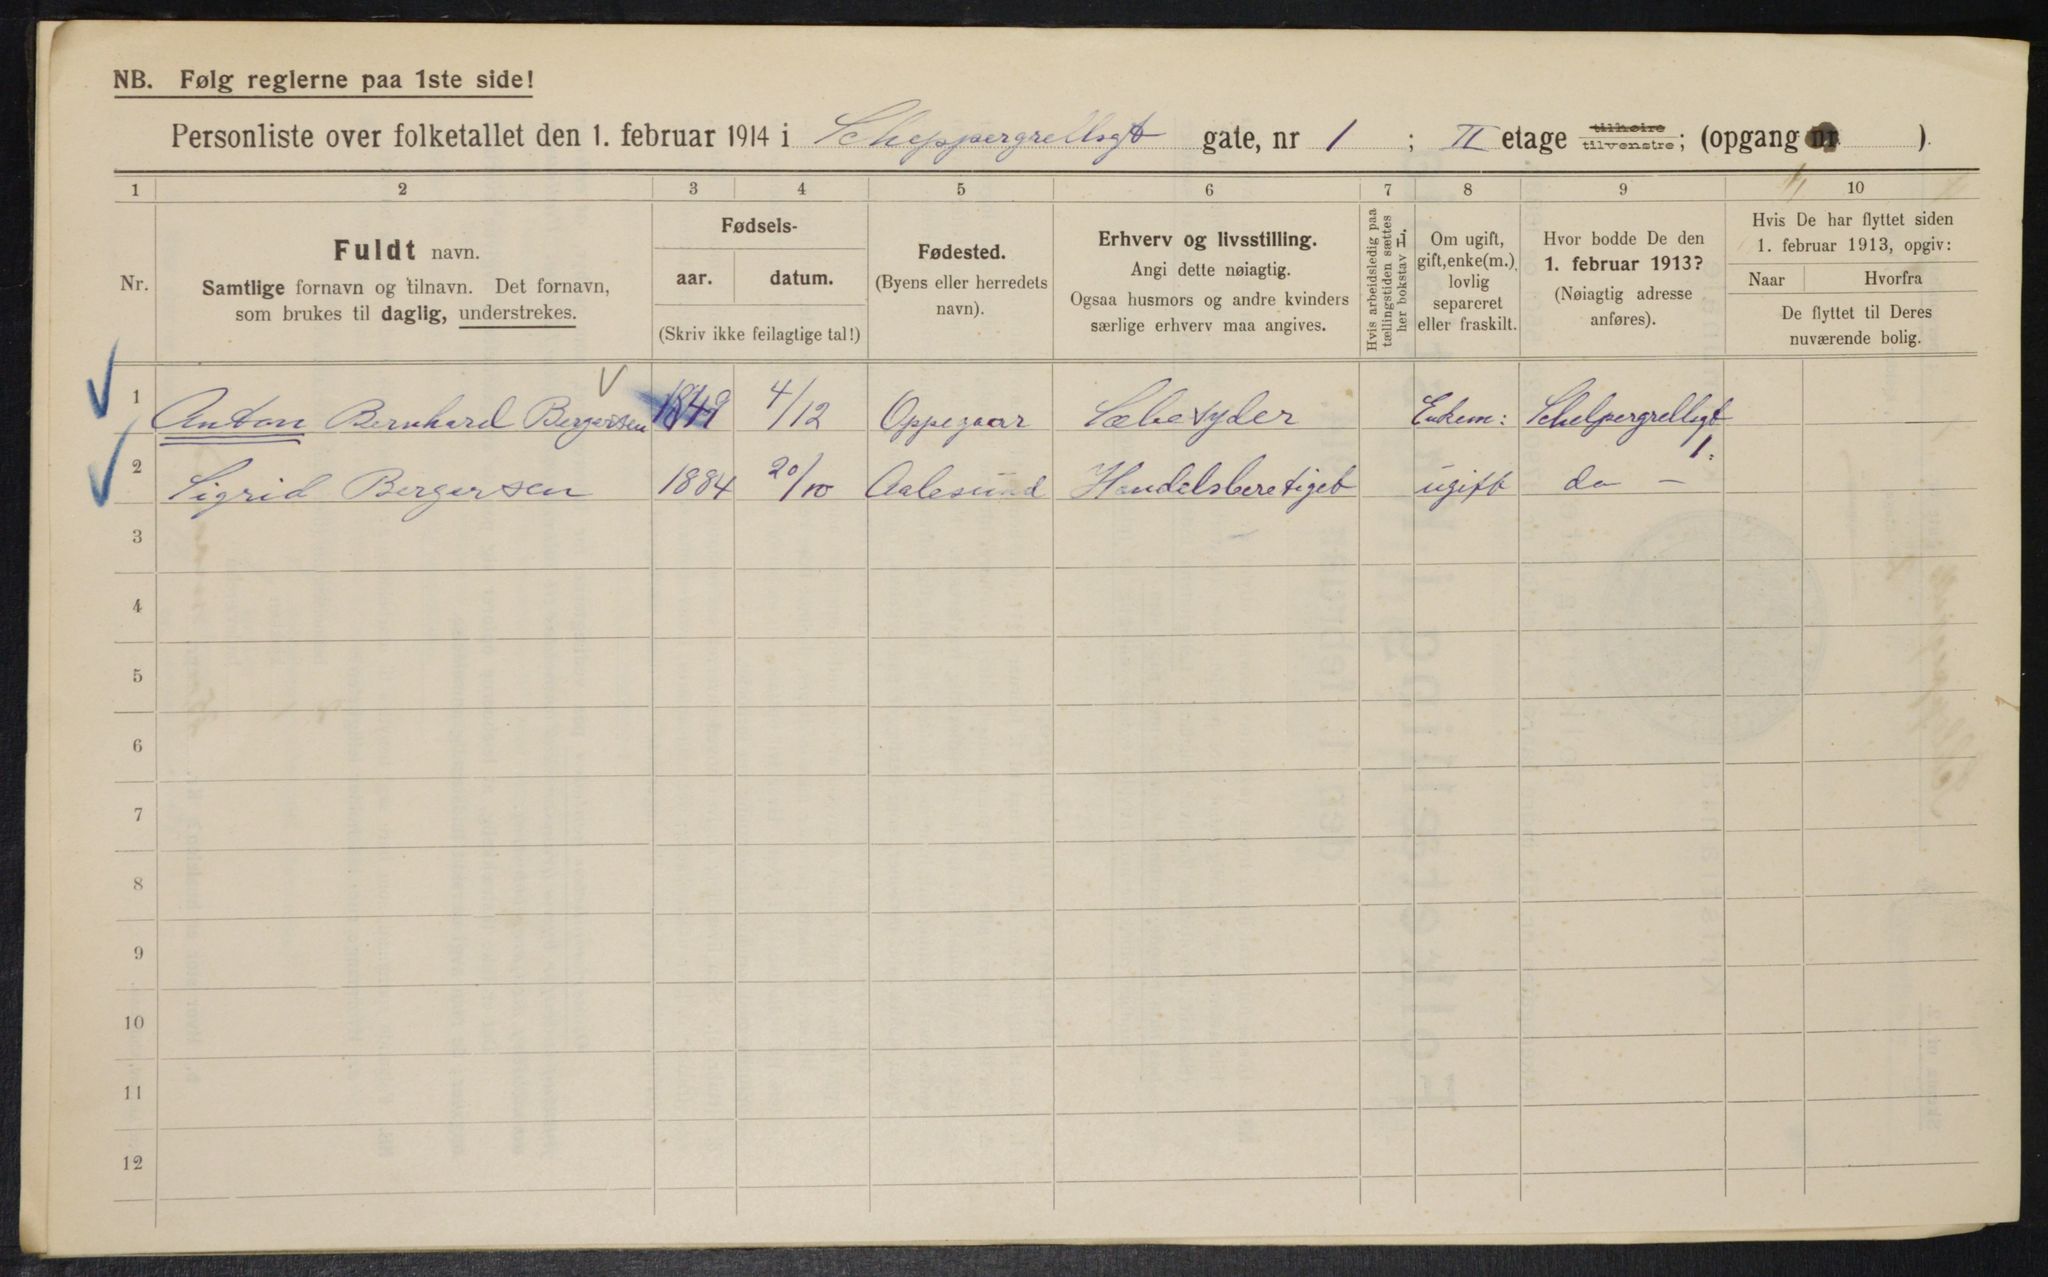 NB. Følg reglerne paa 1ste side!
Personliste over folketallet den 1. februar 1914 i Scheppergrellsgt gate, nr 1 ; II etage tilhøire tilvenstre; (opgang nr ).
1 2 3 4 5 6 7 8 9 10
Nr.
Fuldt navn.
Samtlige fornavn og tilnavn. Det fornavn,
som brukes til daglig, understrekes.
Fødsels-
aar. datum.
(Skriv ikke feilagtige tal!)
Fødested.
(Byens eller herredets
navn).
Erhverv og livsstilling.
Angi dette nøiagtig.
Ogsaa husmors og andre kvinders
særlige erhverv maa angives.
Hvis arbeidsledig paa
tællingstiden sættes
her bokstav L.
Om ugift,
gift, enke(m.),
lovlig
separeret
eller fraskilt.
Hvor bodde De den
1. februar 1913?
(Nøiagtig adresse
anføres).
Hvis De har flyttet siden
1. februar 1913, opgiv:
Naar Hvorfra
De flyttet til Deres
nuværende bolig.
1 Anton Bernhard Bergersen 1849 4/12 Oppegaar Sæbesyder Enkem: Schelpergrellsgt 1.
2 Sigrid Bergersen 1884 20/10 Aalesund Handelsberetiget ugift do —
3
4
5
6
7
8
9
10
11
12